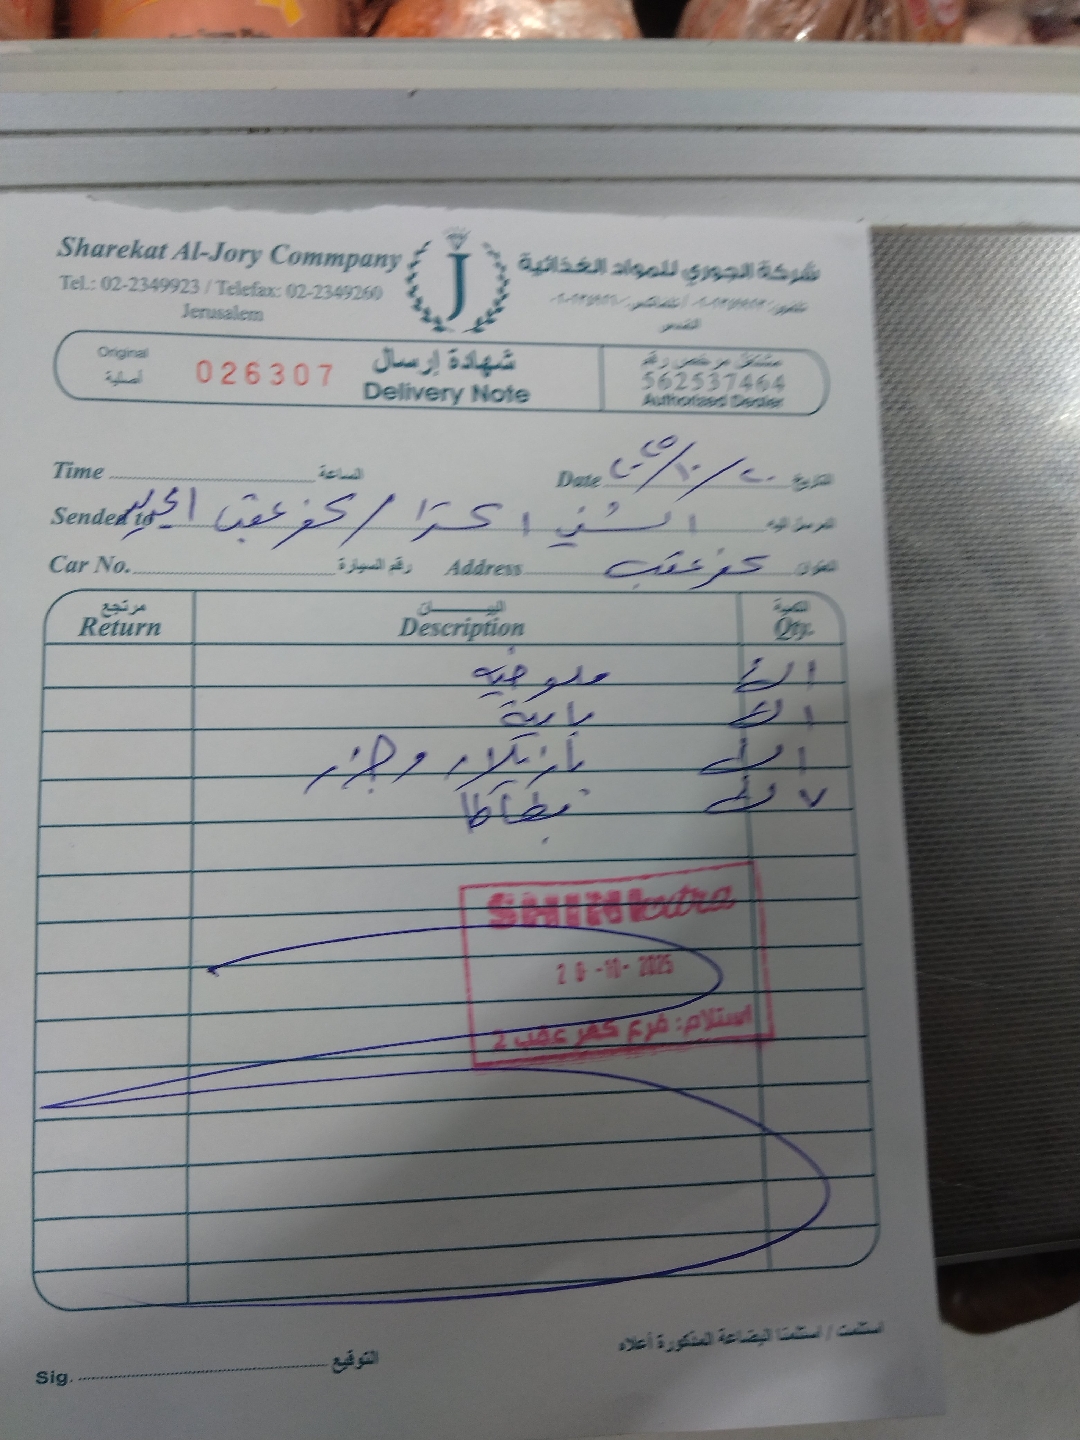 Sharekat Al-Jory Commpany
شركة الجوري للمواد الغذائية
Tel.: 02-2349923 / Telefax: 02-2349260
Jerusalem
القدس
J
Original
أصلية
026307
شهادة إرسال
Delivery Note
مشتغل مرخص رقم
562537464
Authorized Dealer
Time الساعة
Date ٢٠٢٥/١٠/٢٠ التاريخ
Sended to الشني اكسترا / كفر عقب المرسل إليه
Car No. رقم السيارة Address كفر عقب العنوان
مرتجع البيان الكمية
Return Description Qty.
ملوخية ١
بامية ١
بازيلاء وجزر ١
بطاطا ٧
SHINI extra
20-10-2025
استلام: فرع كفر عقب 2
استلمت / استلمنا البضاعة المذكورة أعلاه
Sig. التوقيع